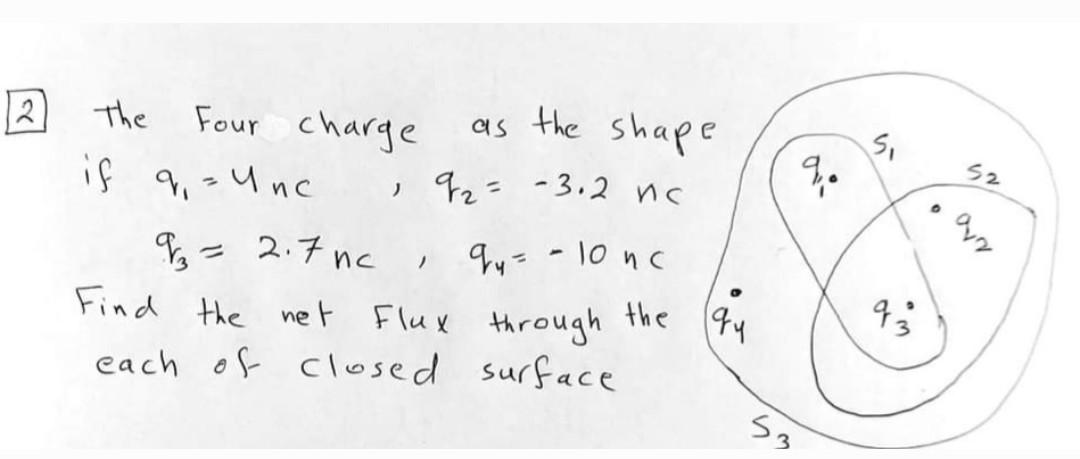 2 The Four charge as the shape
if q₁ = 4 nc , q₂ = -3.2 nc
q₃ = 2.7 nc , q₄ = -10 nc
Find the net Flux through the
each of closed surface
S₁
q₁
S₂
q₂
q₃
q₄
S₃